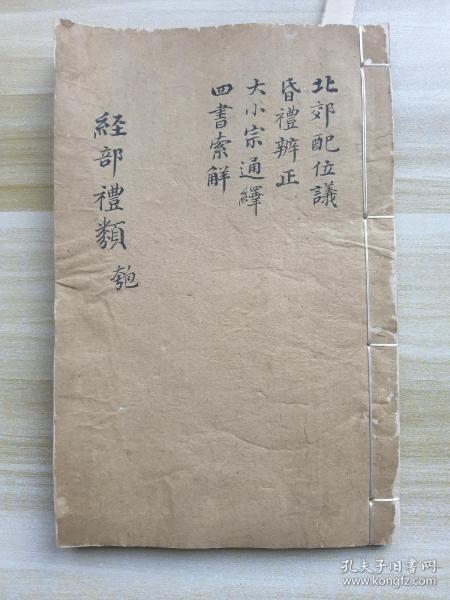 北郊配位議
昏禮辨正
大小宗通繹
四書索解
経部禮類
匏
孔夫子旧书网
www.kongfz.com